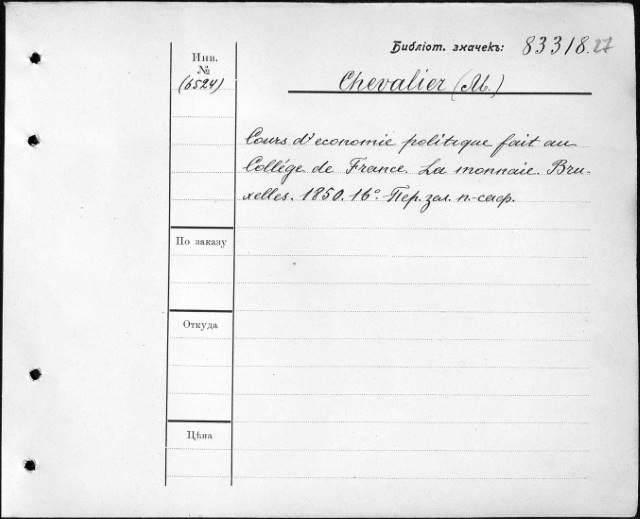 Библіот. значекъ: 83318.27
Инв.
№
(6524)
Chevalier (M.)
Cours d'economie politique fait au
Collége de France. La monnaie. Bru-
xelles. 1850. 16°. Пер. зел. п.-саф.
По заказу
Откуда
Цѣна